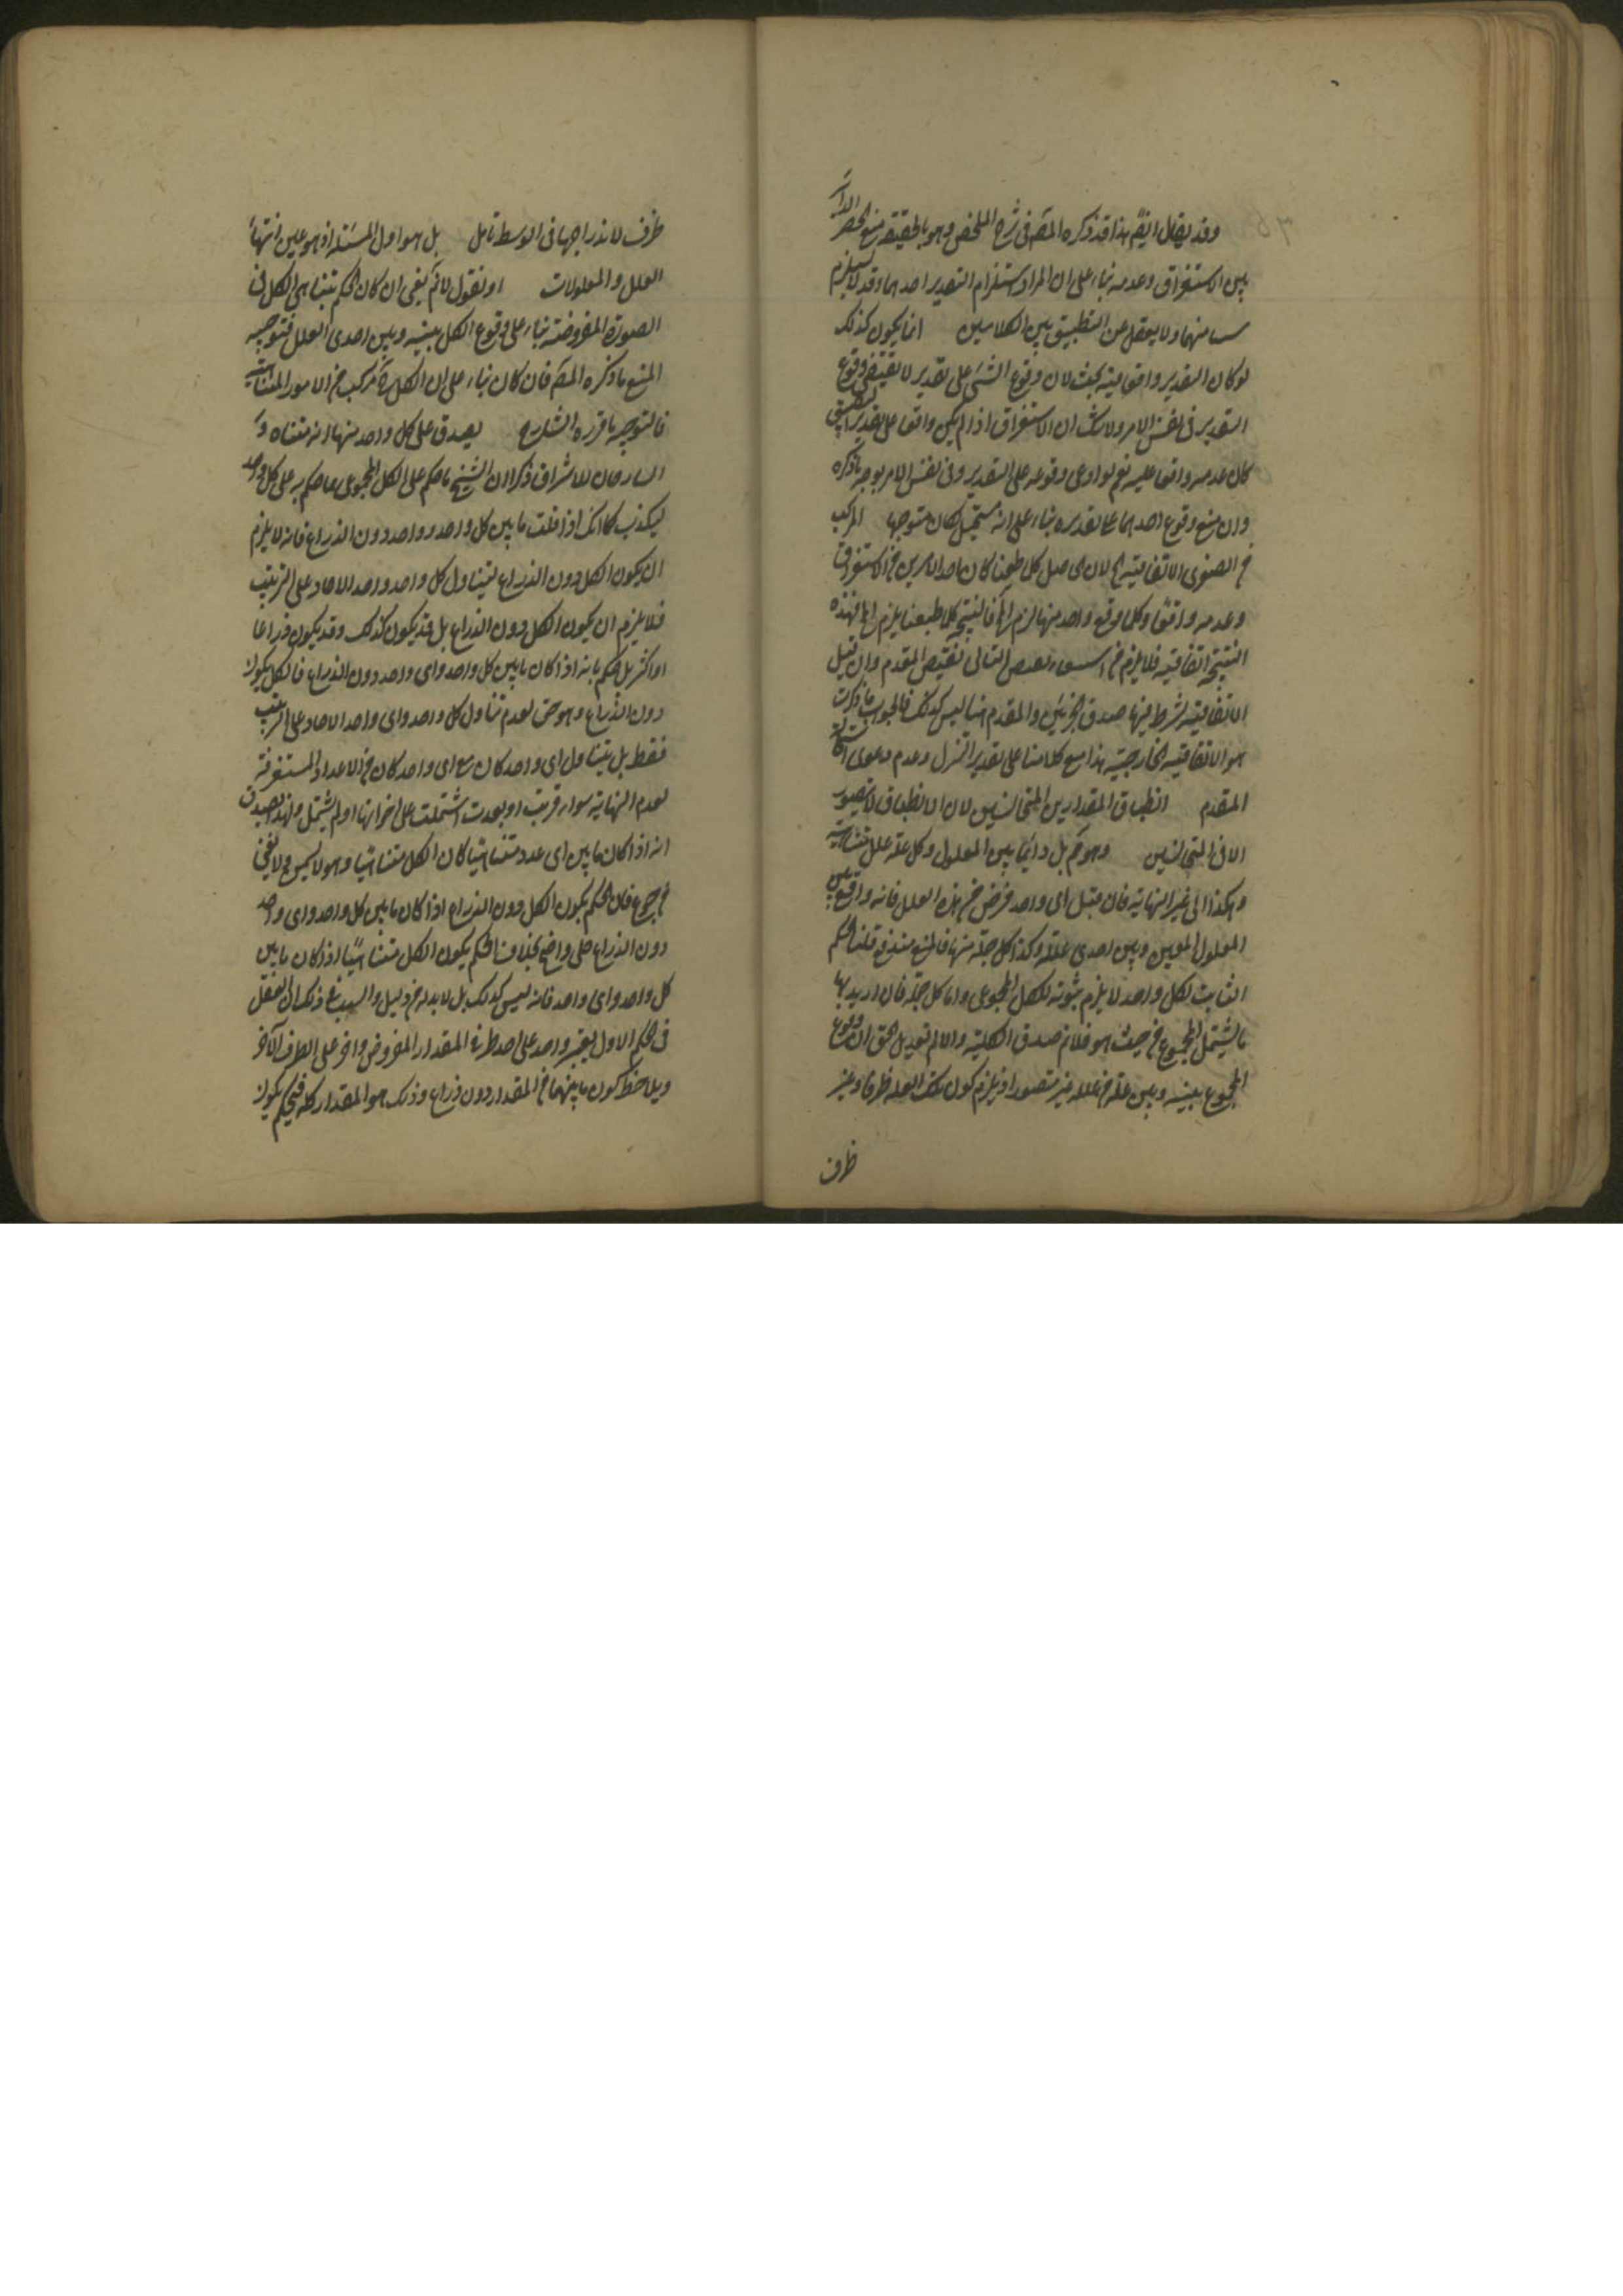 وقد يقال ايضا هذا قد ذكره المص فى شرح الملخص وهو بالحقيقة منع الحصر الدائر
بين الاستغراق وعدمه بناء على ان المراد استلزام التقدير احدهما وقد لا يستلزم
منهما ولا يعقل عن التطبيق بين الكلامين انما يكون كذلك
لو كان التقدير واقعا فيه بحث لان وقوع الشئ على تقدير لا يقتضى وقوع
التقدير فى نفس الامر ولا شك ان الاستغراق اذا لم يكن واقعا على تقدير التطبيق
كان عدمه واقعا عليه نعم لو ادعى وقوعه على التقدير وفى نفس الامر يوجه ما ذكره
وان منع وقوع احدهما على تقديره بناء على انه مستحيل لكان متوجها المركب
من الصغرى الاتفاقية لان حاصل كلما طبقنا كان احد الامرين من الاستغراق
وعدمه واقعا وكلما وقع واحد منهما لزم المح فالنتيجة كلما طبقنا يلزم المح فهذه
النتيجة اتفاقية فلا يلزم من نقيض التالى نقيض المقدم وان قيل
الاتفاقية شرط فيها صدق الجزئين والمقدم هنا ليس كذلك فالجواب ما ذكرت
هو الاتفاقية الخارجية هذا مع كلامنا على تقدير التنزل وعدم دعوى
المقدم انطباق المقدارين المتجانسين لان الانطباق لا يتصور
الا فى المتجانسين وهو ثم بل دائما بين المعلول وكل علة علل متناهية
وهكذا الى غير النهاية فان قيل اى واحد فرض من هذه العلل فانه واقع بين
المعلول المعين وبين احدى علله وكذا كل جملة منها فالمنع مندفع قلنا الحكم
الثابت لكل واحد لا يلزم ثبوته للكل المجموعى واما كل جملة فان اريد بها
ما يشتمل المجموع من حيث هو فلانم صدق الكلية والا لم يفد بل الحق ان وقوع
المجموع بينه وبين علة من علله غير متصور اذ يلزم كون تلك العلة طرفا وغير
طرف
طرف لاندراجها فى الوسط تامل بل هو اول المسئلة اذ هو عين انتهاء
العلل والمعلولات او نقول لانم يكفى ان كان الحكم بتناهى الكل فى
الصورة المفروضة بناء على وقوع الكل بينه وبين احدى العلل فتوجيه
المنع ما ذكره المص فان كان بناء على ان الكل مركب من الامور المتناهية
فالتوجيه ما قرره الشارح يصدق على كل واحد منها انه متناه
للاشراق ذكر ان الشيخ ما حكم على الكل المجموعى بما حكم به على كل واحد
ليكذب كما انك اذا قلت ما بين كل واحد وواحد دون الذراع فانه لا يلزم
ان يكون الكل دون الذراع لتناول كل واحد واحد الاحاد على الترتيب
فلا يلزم ان يكون الكل دون الذراع بل قد يكون كذلك وقد يكون ذراعا
او اكثر بل حكم بانه اذا كان ما بين كل واحد واى واحد دون الذراع فالكل يكون
دون الذراع وهو حق لعدم تناول كل واحد واى واحد الاحاد على الترتيب
فقط بل يتناول اى واحد كان مع اى واحد كان من الاعداد المستغرقة
لعدم النهاية سواء قربت او بعدت اشتملت على اخواتها او لم يشتمل ولهذا يصدق
انه اذا كان ما بين اى عدد متناهيا كان الكل متناهيا وهو لا يسمن ولا يغنى
من جوع فان الحكم بكون الكل دون الذراع اذا كان ما بين كل واحد واى واحد
دون الذراع جلى واضح بخلاف الحكم بكون الكل متناهيا اذا كان ما بين
كل واحد واى واحد فانه ليس كذلك بل لا بد له من دليل والسبب فى ذلك ان العقل
فى الحكم الاول يعتبر واحد على احد طرفى المقدار المفروض واخر على الطرف الآخر
ويلاحظ كون ما بينهما من المقدار دون ذراع وذلك هو المقدار كله فيحكم بكون